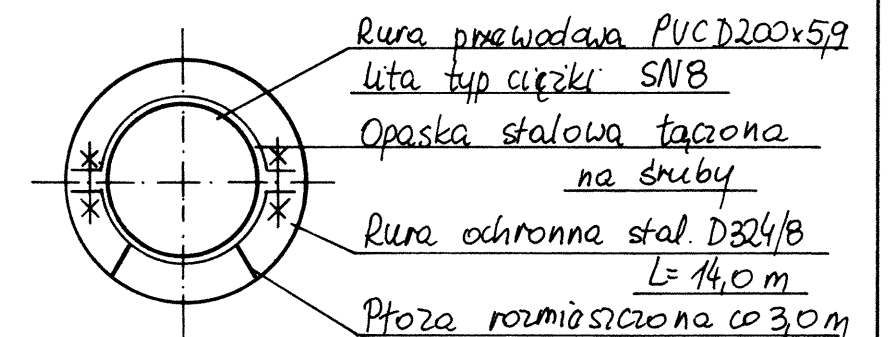 Rura przewodowa PVC D200x5,9
lita typ ciężki SN8
Opaska stalowa łączona
na śruby
Rura ochronna stal. D324/8
L= 14,0 m
Płoza rozmieszczona co 3,0m